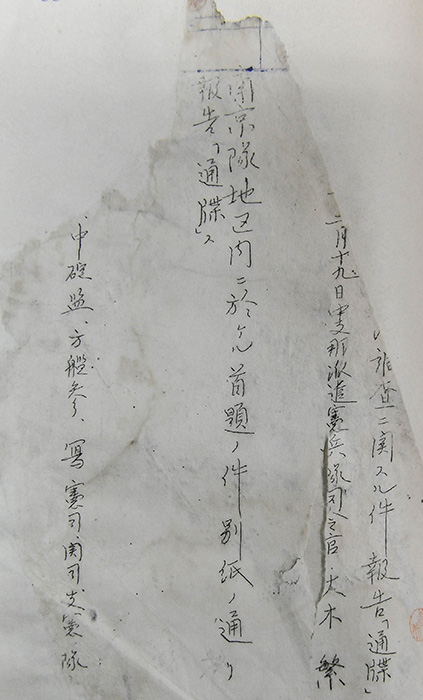 査ニ関スル件報告「通牒
二月十九日中支那派遣憲兵隊司令官 大木 繁
南京隊地区内ニ於ケル首題ノ件別紙ノ通リ
報告「通牒」ス
中碇監、方艦参、写 憲司関司支憲隊